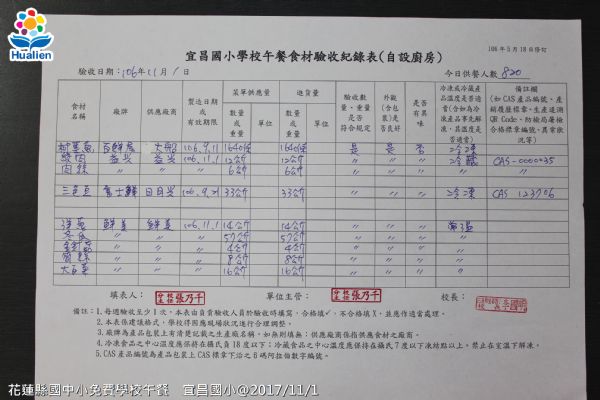 Hualien
106年5月18日修訂
宜昌國小學校午餐食材驗收紀錄表(自設廚房)
驗收日期：106年11月1日 今日供餐人數 820
食材名稱 廠牌 供應廠商 製造日期或有效期限 菜單供應量 進貨量 驗收數量、重量是否符合規定 外觀(含包裝)是否良好 是否有異味 冷凍或冷藏產品溫度是否適當(含如為冷凍產品事先解凍，其溫度是否適當) 備註欄(如CAS產品編號、產銷履歷標章、生產追溯QR Code、防檢局屠檢合格標章編號、異常狀況等)
數量或重量 單位 數量或重量 單位
106.9.11 1640 1640 是 是 否 冷凍
絞肉 106.11.1 12公斤 12公斤 〃 〃 〃 冷藏 CAS-0000035
肉絲 〃 〃 〃 6公斤 6公斤 〃 〃 〃
三色豆 富士鮮 日日興 106.9.21 33公斤 33公斤 〃 〃 〃 冷凍 CAS 123706
洋蔥 鮮美 鮮美 106.11.1 14公斤 14公斤 〃 〃 〃 常溫
冬瓜 〃 〃 〃 57公斤 57公斤 〃 〃 〃 〃
金針菇 〃 〃 〃 4公斤 4公斤 〃 〃 〃 〃
〃 〃 〃 8公斤 8公斤 〃 〃 〃 〃
〃 〃 〃 16公斤 16公斤 〃 〃 〃 〃
填表人： 張乃千 單位主管： 張乃千 校長：
備註：1.每週驗收至少1次，本表由負責驗收人員於驗收時填寫，合格填✓，不合格填X，並應作適當處理。
2.本表係建議格式，學校得因應現場狀況進行合理調整。
3.廠牌為產品包裝上有清楚記載之生產廠名稱，如無則填無；供應廠商係指供應食材之廠商。
4.冷凍食品之中心溫度應保持在攝氏負18度以下；冷藏食品之中心溫度應保持在攝氏7度以下凍結點以上，禁止在室溫下解凍。
5.CAS產品編號為產品包裝上CAS標章下沿之6碼阿拉伯數字編號。
花蓮縣國中小免費學校午餐 宜昌國小@2017/11/1